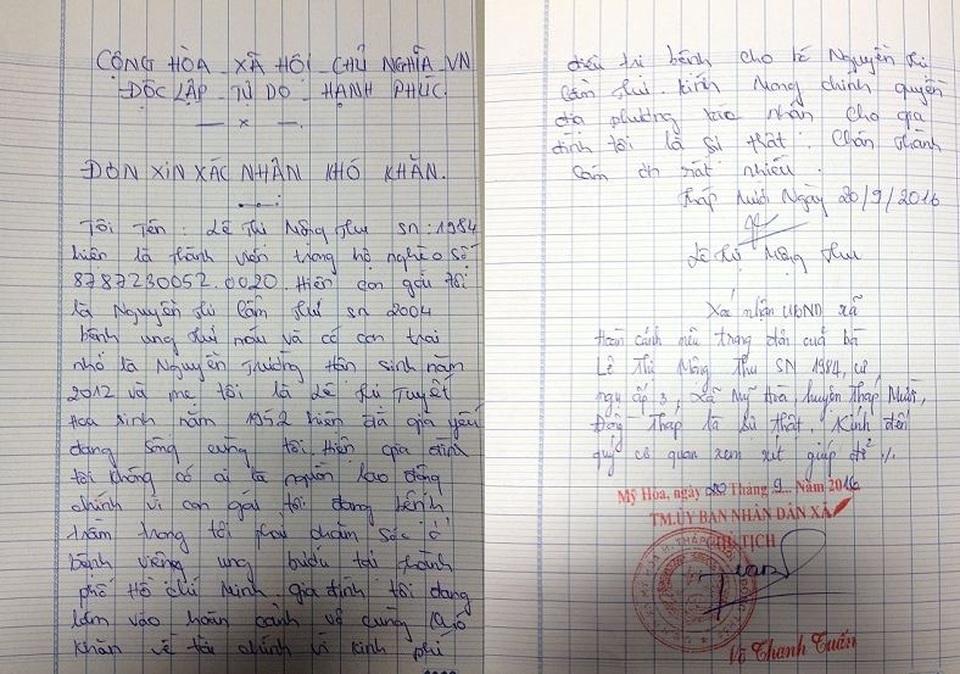 CỘNG HÒA _ XÃ HỘI _ CHỦ NGHĨA _ VN
ĐỘC LẬP _ TỰ DO _ HẠNH PHÚC.
— x —.
ĐƠN XIN XÁC NHẬN KHÓ KHĂN.
Tôi Tên : Lê Thị Mộng Thu SN : 1984
hiện là thành viên trong hộ nghèo số
8787230052.0020. Hiện con gái tôi
là Nguyễn Thị Cẩm Thi sn 2004
bệnh ung thư máu và có con trai
nhỏ là Nguyễn Trường Hân sinh năm
2012 và mẹ tôi là Lê Thị Tuyết
Hoa sinh năm 1952 hiện đã già yếu
đang sống cùng tôi. Hiện gia đình
tôi không có ai là người lao động
chính vì con gái tôi đang bệnh
trầm trọng tôi phải chăm sóc ở
bệnh viêng ung bướu tại thành
phố Hồ Chí Minh. gia đình tôi đang
lâm vào hoàn cảnh vô cùng khó
khăn về tài chính vì kinh phí
điều trị bệnh cho bé Nguyễn Thị
Cẩm Thi. Kính mong chính quyền
địa phương xác nhận cho gia
đình tôi là sự thật. Chân thành
cảm ơn rất nhiều.
Tháp Mười Ngày 20/9/2016
Lê Thị Mộng Thu
Xác nhận UBND xã
Hoàn cảnh nêu trong đơn của bà
Lê Thị Mộng Thu SN 1984, cư
ngụ ấp 3, xã Mỹ Hòa, huyện Tháp Mười,
Đồng Tháp là sự thật. Kính đến
quý cơ quan xem xét giúp đỡ ./.
Mỹ Hòa, ngày 20 Tháng 9 Năm 2016
TM.ỦY BAN NHÂN DÂN XÃ
CHỦ TỊCH
Võ Thanh Tuấn